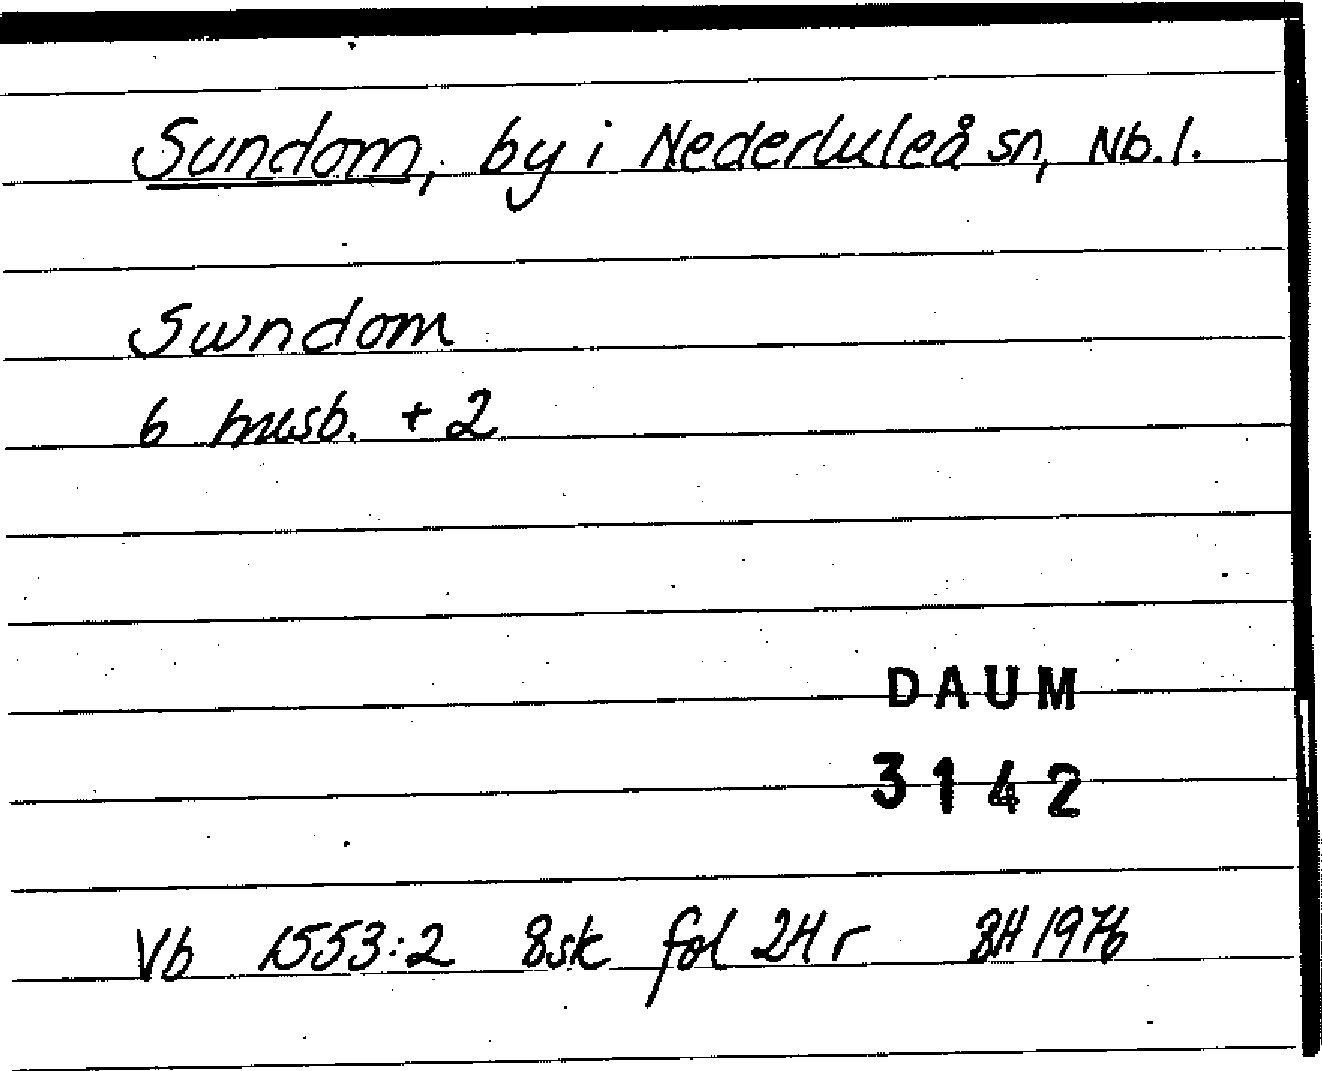 Sundom, by i Nederluleå sn, Nb.l.
Swndom
6 husb. + 2
DAUM
3142
Vb 1553:2 8sk fol 24r BH 1976